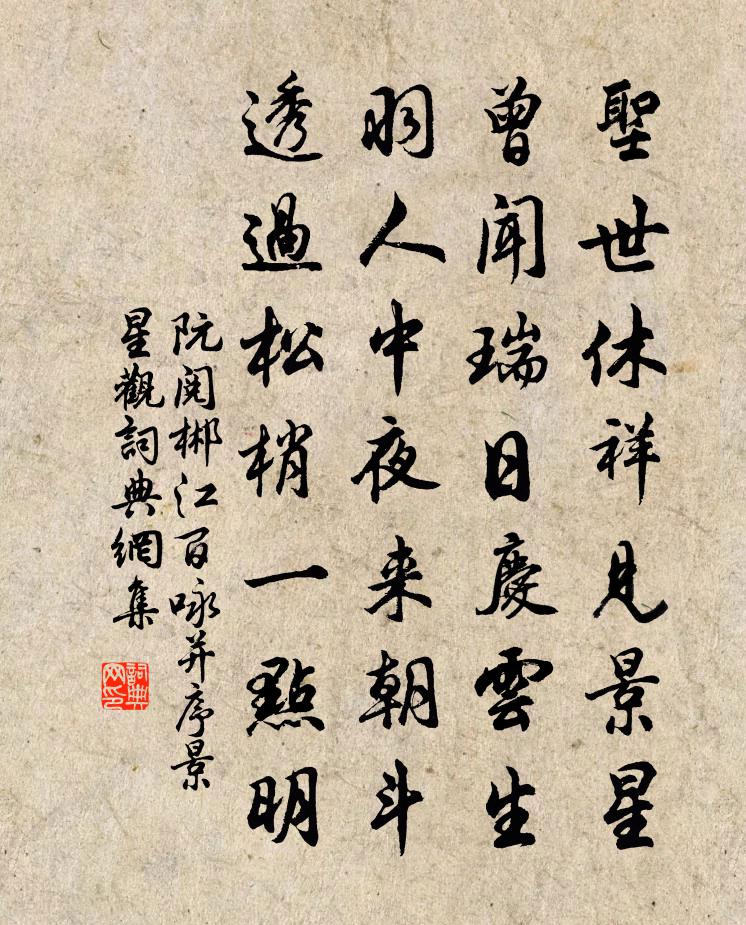 聖世休祥見景星
曾聞瑞日慶雲生
羽人中夜来朝斗
透過松梢一點明
阮閱郴江百咏并序景
星觀詞典網集
詞典网印